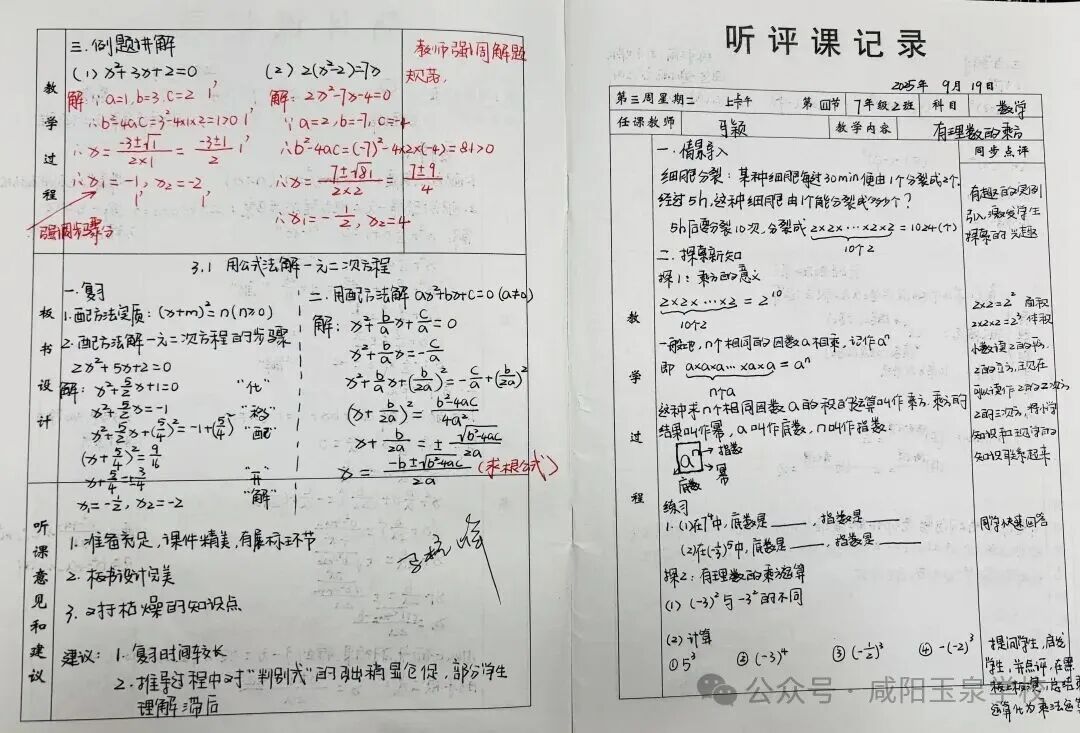 三.例题讲解
(1) x²+3x+2=0
解: ∵a=1, b=3, c=2 1'
∴b²-4ac=3²-4×1×2=1>0 1'
∴x=(-3±√1)/(2×1)=(-3±1)/2 1'
∴x₁=-1, x₂=-2
1' 1'
强调步骤分
(2) 2(x²-2)=7x
解: 2x²-7x-4=0
∵a=2, b=-7, c=-4
∴b²-4ac=(-7)²-4×2×(-4)=81>0
∴x=(7±√81)/(2×2)=(7±9)/4
∴x₁=-1/2, x₂=4
教师强调解题
规范.
教学过程
3.1 用公式法解一元二次方程
板书设计
一.复习
1.配方法实质: (x+m)²=n(n≥0)
2.配方法解一元二次方程的步骤
2x²+5x+2=0
解: x²+5/2x+1=0 "化"
x²+5/2x=-1 "移"
x²+5/2x+(5/4)²=-1+(5/4)² "配"
(x+5/4)²=9/16
x+5/4=±3/4 "开"
x₁=-1/2, x₂=-2 "解"
二.用配方法解 ax²+bx+c=0 (a≠0)
解: x²+b/a x+c/a=0
x²+b/a x=-c/a
x²+b/a x+(b/2a)²=-c/a+(b/2a)²
(x+b/2a)²=(b²-4ac)/4a²
x+b/2a=±√(b²-4ac)/2a
x=(-b±√(b²-4ac))/2a (求根公式)
听课意见和建议
1.准备充足,课件精美,有展示环节
2.板书设计完美
3.对枯燥的知识点
建议: 1.复习时间较长
2.推导过程中对"判别式"的引出稍显仓促,部分学生
理解滞后
听评课记录
2025年 9月19日
第三周星期二 上午 第四节 7年级2班 科目 数学
任课教师 马颖 教学内容 有理数的乘方
同步点评
教学过程
一.情景导入
细胞分裂: 某种细胞每过30min便由1个分裂成2个.
经过5h,这种细胞由1个能分裂成多少个?
5h后要分裂10次,分裂成 2×2×…×2×2=1024(个)
10个2
有趣的实例
引入激发学生
探索的兴趣
二.探索新知
探1: 乘方的意义
2×2×…×2=2¹⁰
10个2
一般地,n个相同的因数a相乘,记作aⁿ
即 a×a×a…×a×a=aⁿ
n个a
这种求n个相同因数a的积的运算叫作乘方.乘方的
结果叫作幂,a叫作底数,n叫作指数.
aⁿ
指数
幂
底数
2×2=2² 面积
2×2×2=2³ 体积
小数读2的平方,
2的立方,
可以读作2的2次方,
2的三次方,将小学
知识和
知识联系起来
练习
1.(1)在7⁴中,底数是____,指数是____
(2)在(-1/3)⁵中,底数是____,指数是____
同学快速回答
探2: 有理数的乘方运算
(1) (-3)²与-3²的不同
(2) 计算
①5³ ②(-3)⁴ ③(-1/2)³ ④-(-2)³
提问学生,
学生,并点评,在黑
运算化为乘法运算
公众号·咸阳玉泉学校